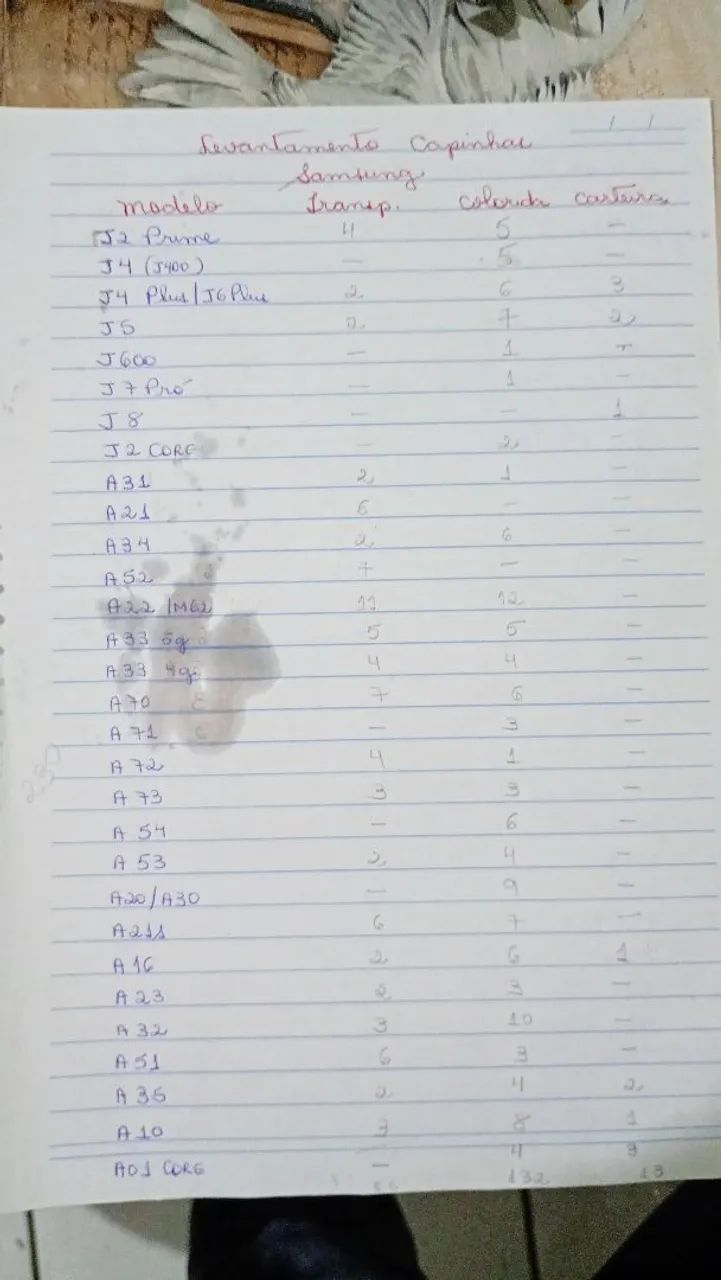 / /
Levantamento Capinhas
Samsung
Modelo Transp. Colorida Carteira
J2 Prime 4 5 -
J4 (J400) - 5 -
J4 Plus/J6 Plus 2 6 3
J5 2 7 2
J600 - 1 -
J7 Pró - 1 -
J8 - - 1
J2 CORE - 2 -
A31 2 1 -
A21 6 - -
A34 2 6 -
A52 7 - -
A22 /M62 11 12 -
A33 5g 5 5 -
A33 4g 4 4 -
A70 7 6 -
A71 - 3 -
A72 4 1 -
A73 3 3 -
A54 - 6 -
A53 2 4 -
A20/A30 - 9 -
A211 6 7 -
A16 2 6 1
A23 2 3 -
A32 3 10 -
A51 6 3 -
A36 2 4 2
A10 3 8 1
A01 CORE - 4 3
132 13